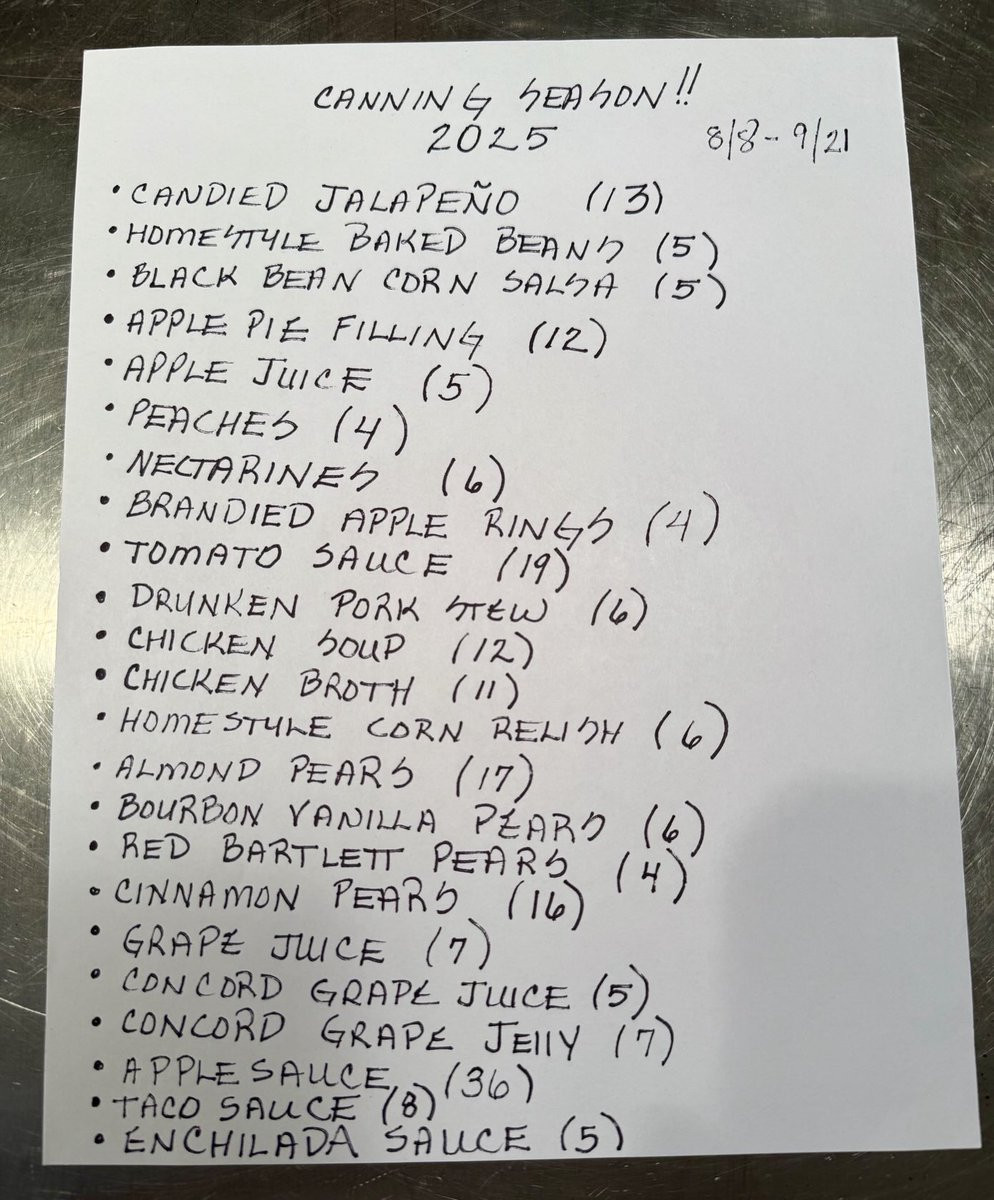 CANNING SEASON!!
2025 8/8-9/21
• CANDIED JALAPEÑO (13)
• HOMESTYLE BAKED BEANS (5)
• BLACK BEAN CORN SALSA (5)
• APPLE PIE FILLING (12)
• APPLE JUICE (5)
• PEACHES (4)
• NECTARINES (6)
• BRANDIED APPLE RINGS (4)
• TOMATO SAUCE (19)
• DRUNKEN PORK STEW (6)
• CHICKEN SOUP (12)
• CHICKEN BROTH (11)
• HOMESTYLE CORN RELISH (6)
• ALMOND PEARS (17)
• BOURBON VANILLA PEARS (6)
• RED BARTLETT PEARS (4)
• CINNAMON PEARS (16)
• GRAPE JUICE (7)
• CONCORD GRAPE JUICE (5)
• CONCORD GRAPE JEllY (7)
• APPLESAUCE (36)
• TACO SAUCE (8)
• ENCHILADA SAUCE (5)